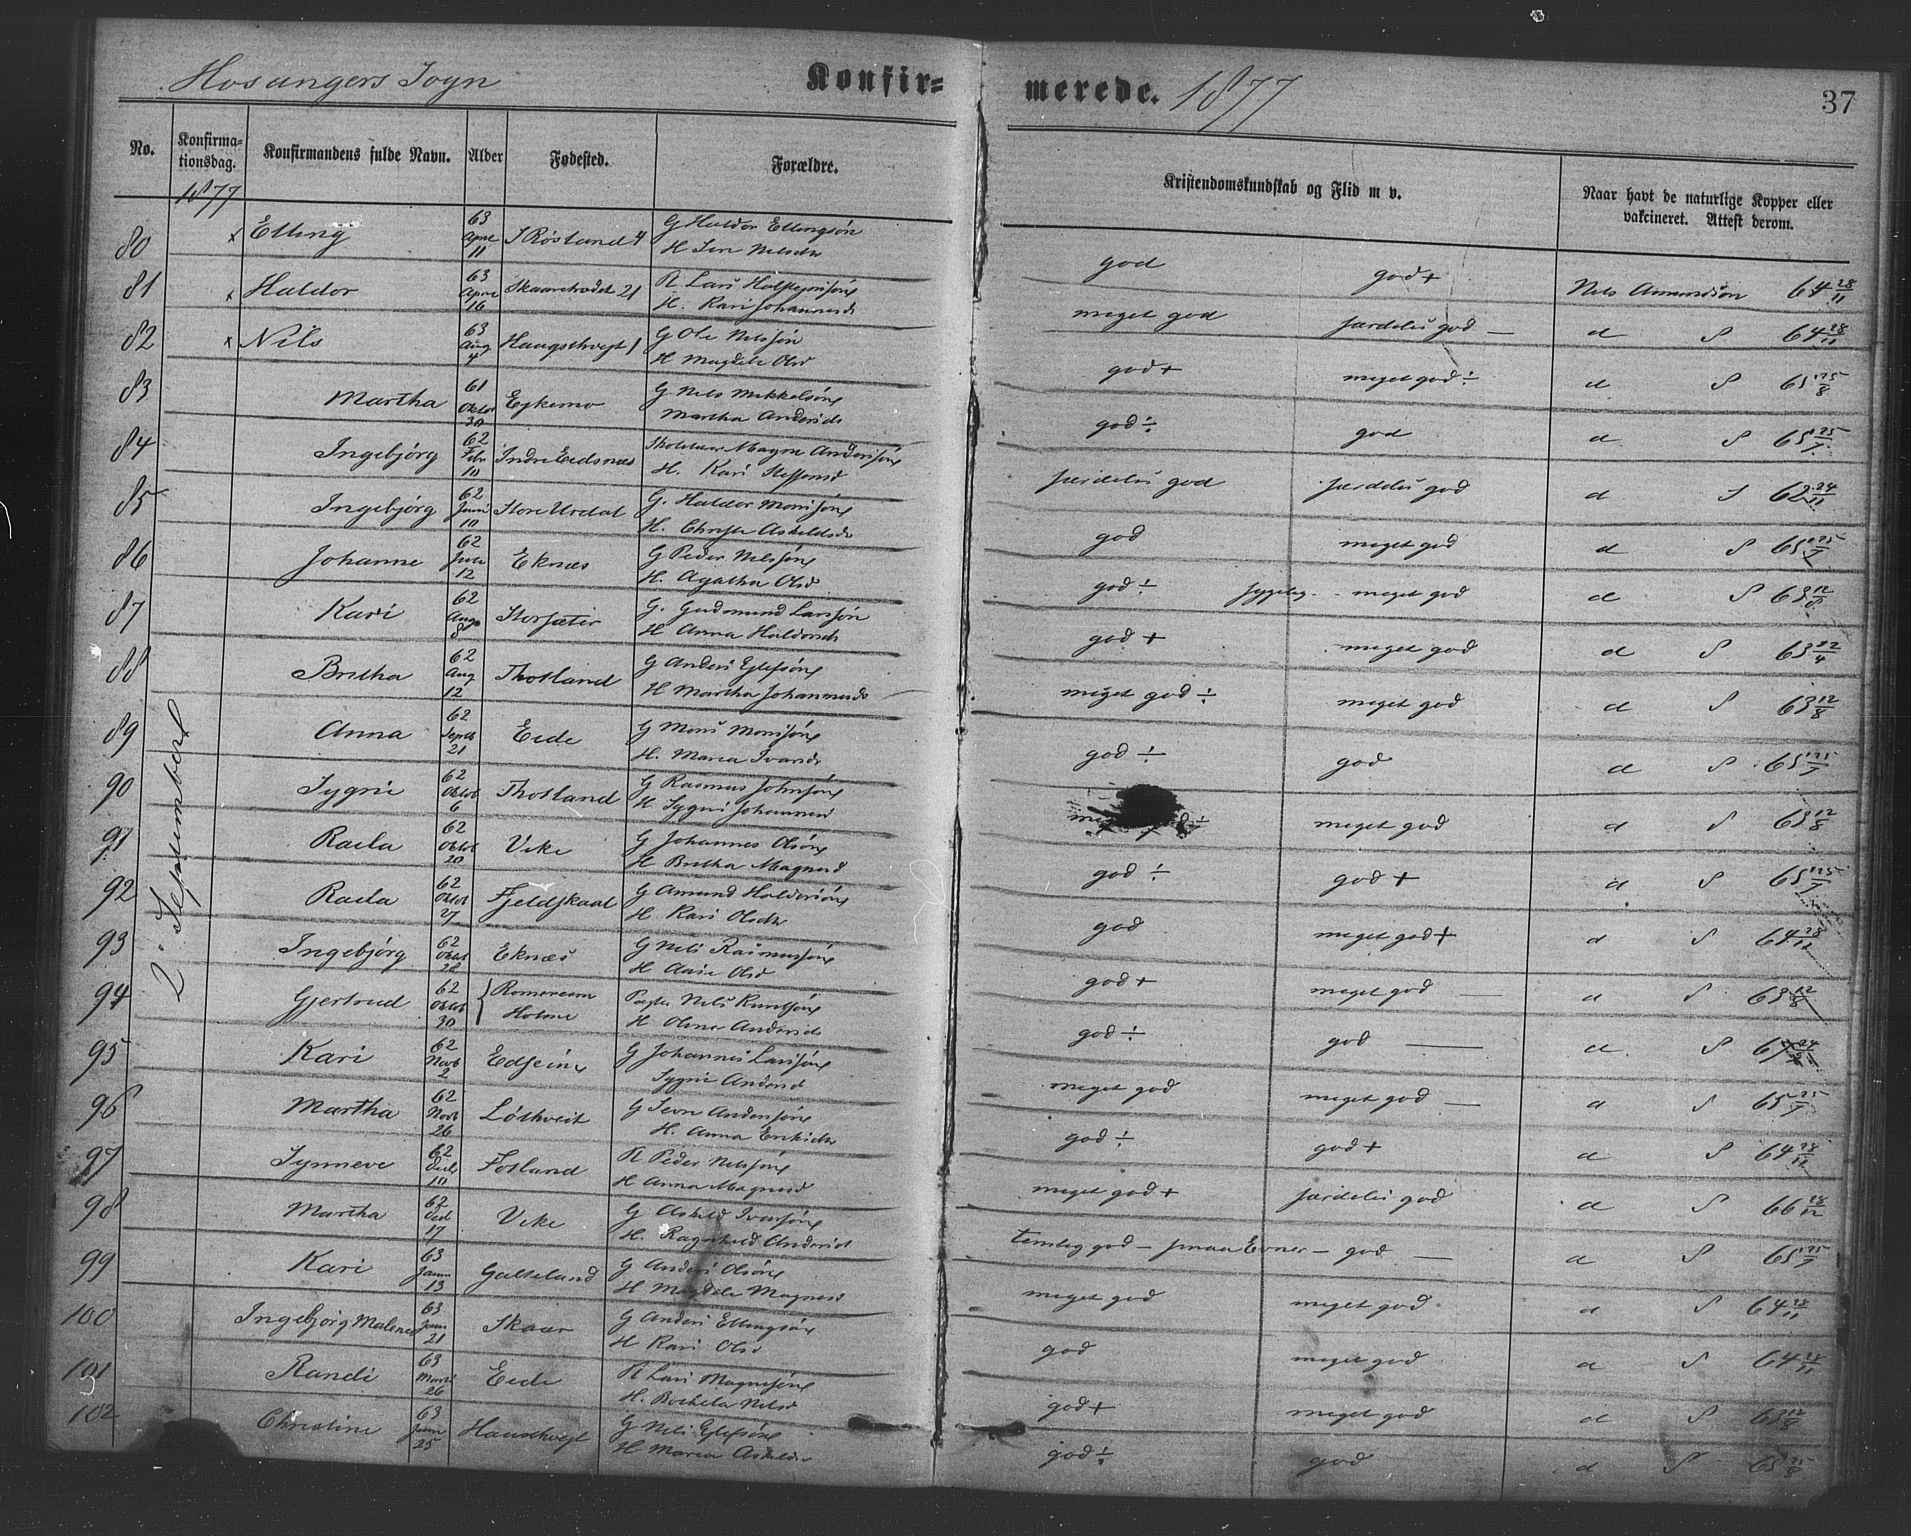 Hosangers Sogn Konfir- merede. 1877 37
No. Konfirma- tionsdag. Konfirmandens fulde Navn. Alder Fødested. Forældre. Kristendomskundskab og Flid m v. Naar havt de naturlige Kopper eller
vakcineret. Attest derom.
1877
2 September
80 x Elling 63 April 11 Røsland 4 G Haldor Ellingsøn
H Siri Nilsdr god god + Nils Amundsøn 64 28/11
81 x Haldor 63 April 16 21 R Lars
H. Kari Johannesd meget god særdeles god — d S 64 28/11
82 x Nils 63 Aug 4 1 G Ole Nilssøn
H Magdele Olsd god + meget god ÷ d S 65 25/8
83 Martha 61 Oktor 30 Eykemo G Nils Mikkelsøn
Martha Andersd god ÷ god d S 65 25/7
84 Ingebjørg 62 Febr 10 Indre Eidsnæs Magne Anderssøn
H. Kari Steffensd særdeles god særdeles god d S 62 24/11
85 Ingebjørg 62 Juni 10 Store Urdal G. Haldor Monssøn
H. Askeldsdr god meget god d S 65 25/7
86 Johanne 62 12 Eknæs G Peder Nilssøn
H. Agatha Olsd god ÷ meget god d S 63 12/8
87 Kari 62 Aug 8 Storsæter G. Gudmund Larssøn
H Anna Haldorsd god + meget god d S 63 12/4
88 Britha 62 Aug 12 Thotland G Anders
H Martha Johannesd meget god ÷ meget god d S 63 12/8
89 Anna 62 Septb 21 Eide G Mons Monssøn
H. Maria Ivarsd god ÷ god d S 65 25/7
90 Sygni 62 Oktob 6 Thotland G Rasmus Johnsøn
H Sygni Johannesd meget god ÷ meget god d S 63 12/8
91 Raela 62 Oktob 20 Vike G Johannes Olsøn
H Britha Magnesd god ÷ god + d S 65 25/7
92 Raela 62 Oktob 27 Fjeldskaal G Amund Haldorsøn
H Kari Olsdr god meget god + d S 64 28/12
93 Ingebjørg 62 Oktob 28 Eknæs G Nils Rasmussøn
H Olsd god + meget god — d S 63 12/8
94 Gjertrud 62 Oktob 30 Romereim
Holme Nils Knutsøn
H Andersd god ÷ god — d S
95 Kari 62 Novb 2 G Johannes Larssøn
Sygni Andersd meget god meget god — d S 65 25/7
96 Martha 62 Novb 26 Løthveit G Anderssøn
H. Anna god ÷ god + d S 64 28/12
97 Synneve 62 Decb 10 Fotland R Peder Nilssøn
H Anna Magnesd meget god + særdeles god d S 66 28/12
98 Martha 62 Ded 17 Vike G Askeld Ivarsøn
H. Ragnhild Andersd temlig god — smaa Evner — god — d S 65 25/7
99 Kari 63 Janu 13 Galteland G Anders Olsøn
H Magdele Magnesd meget god meget god d S 64 28/11
100 Ingebjørg Malene 63 Janu 21 Skaar G Anders Ellingsøn
H Kari Olsd god meget god d S 64 28/11
101 Randi 63 Marts 26 Eide R Lars Magnesøn
H. Nilsd god + meget god d S 63 12/8
102 Christine 63 25 G Nils
H Maria Askeldsd god ÷ god d S 65 25/8